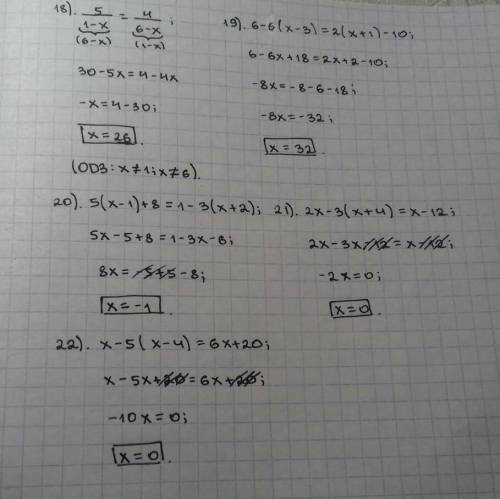 18). 5/(1-x) = 4/(6-x);
(6-x) (1-x)
30-5x=4-4x
-x=4-30;
x=26.
(OD3: x≠1; x≠6).
19). 6-6(x-3)=2(x+1)-10;
6-6x+18=2x+2-10;
-8x=-8-6-18;
-8x=-32;
x=32.
20). 5(x-1)+8=1-3(x+2);
5x-5+8=1-3x-6;
8x=-5+5-8;
x=-1.
21). 2x-3(x+4)=x-12;
2x-3x-12=x-12;
-2x=0;
x=0.
22). x-5(x-4)=6x+20;
x-5x+20=6x+20;
-10x=0;
x=0.